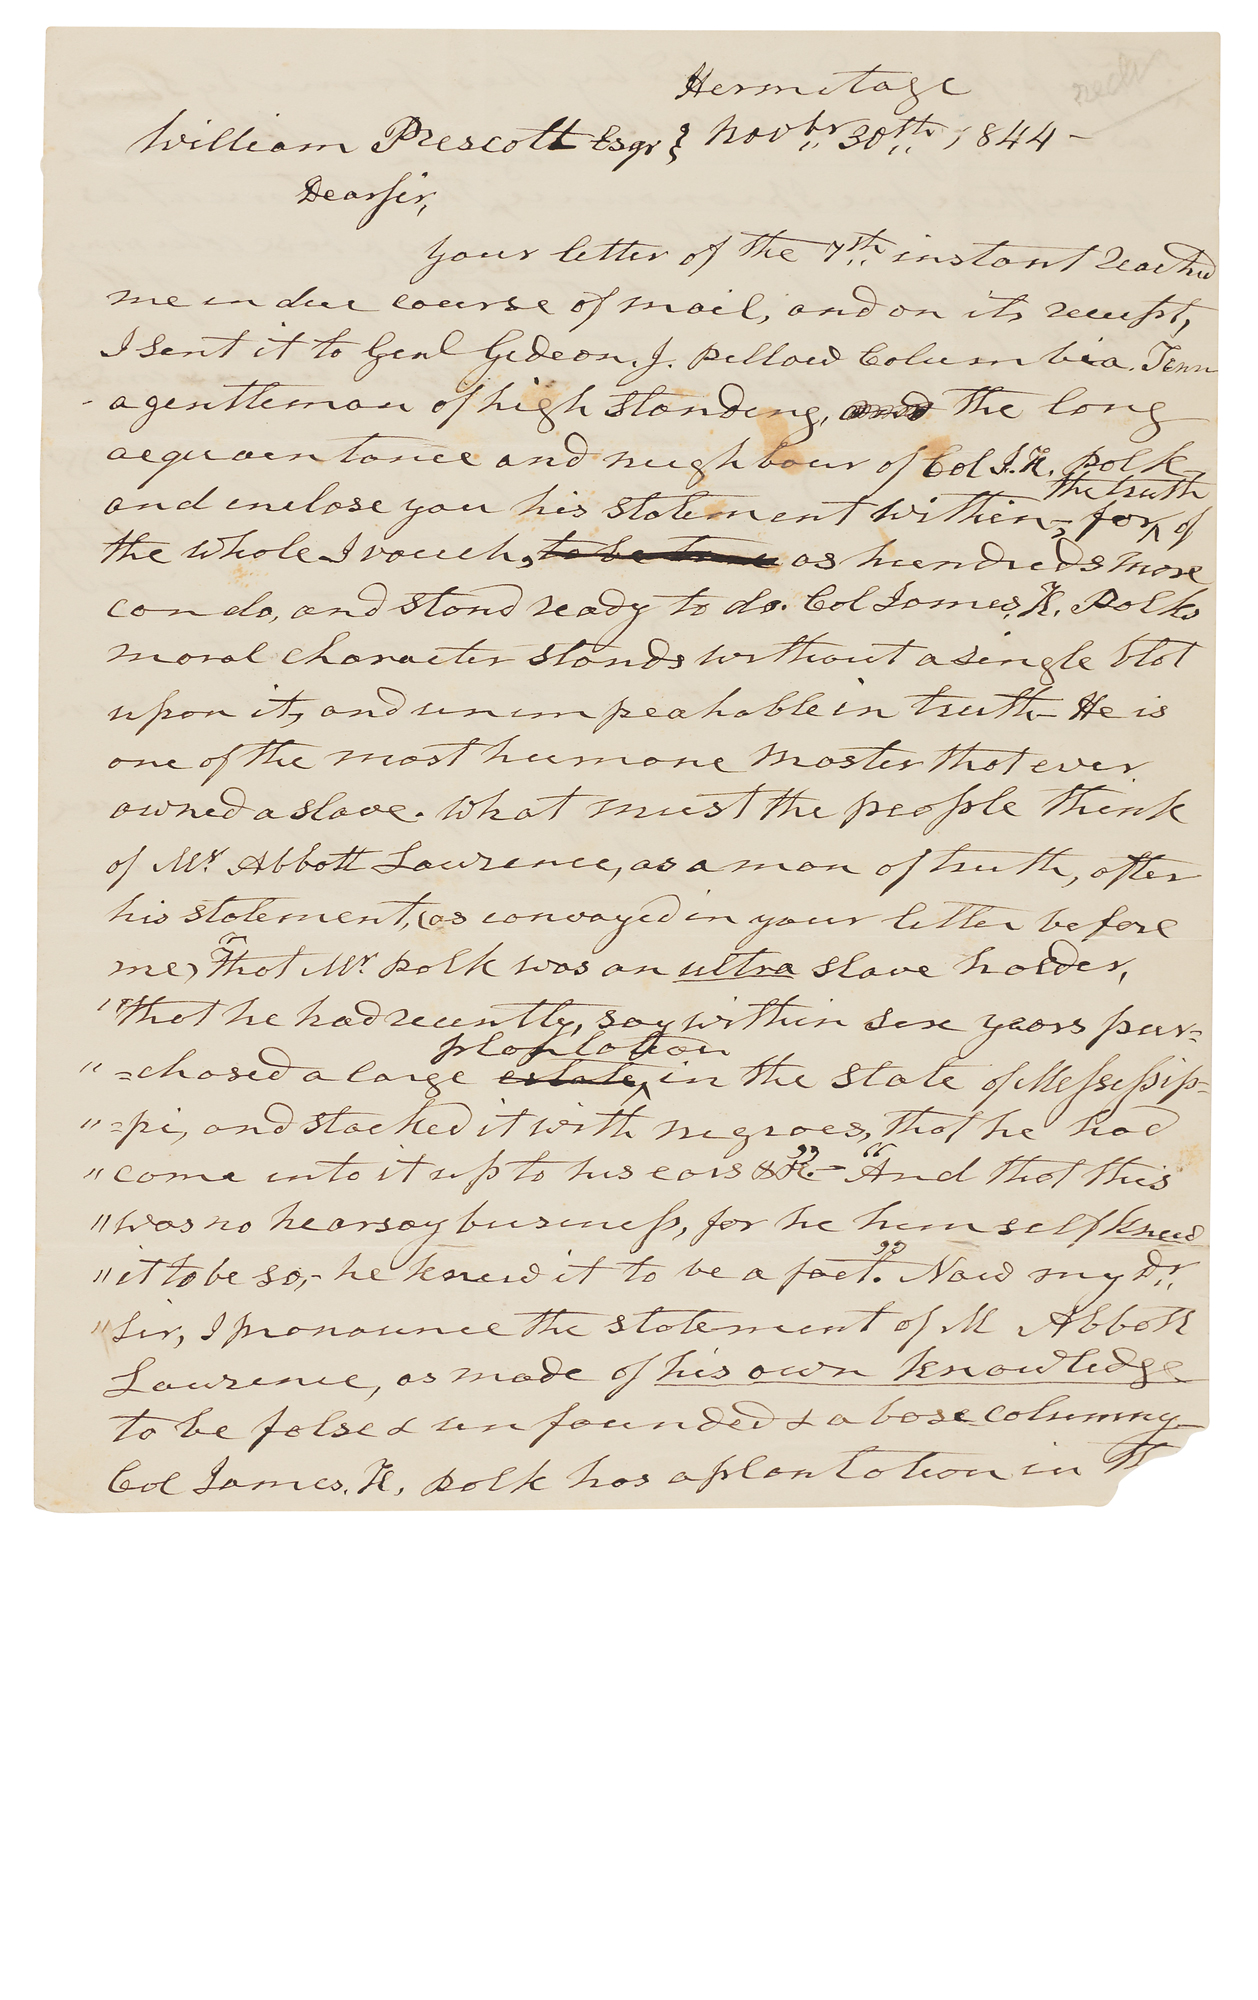 Hermitage
William Prescott Esqr } Novbr 30th 1844–
Dear sir,
your letter of the 7th instant reached
me in due course of mail, and on its receipt,
I sent it to Genl Gideon. J. Pillow Columbia. Tenn
- a gentleman of high standing, and the long
acquaintance and neighbour of Col J. K. Polk
the truth
and enclose you his statement within, for of
the whole I vouch, to be true as hundreds more
can do, and stand ready to do. Col James, K. Polks
moral character stands without a single blot
upon it, and unimpeahable in truth– He is
one of the most humane master that ever
owned a slave. What must the people think
of Mr Abbott Lawrence, as a man of truth, after
his statement, (as convayed in your letter before
me) "That Mr. Polk was an ultra slave holder,
"that he had recently, say within six years pur=
plantation
" =chased a large estate, in the state of Messessip=
" =pi, and stocked it with negroes, that he had
" come into it up to his ears &c." – "And that this
" was no hearsay business, for he himself knew
" it to be so,– he knew it to be a fact." Now my Dr
" Sir, I pronounce the statement of M Abbott
Lawrence, as made of his own knowledge
to be false & unfounded & a base columny
Col James. K. Polk has a plantation in